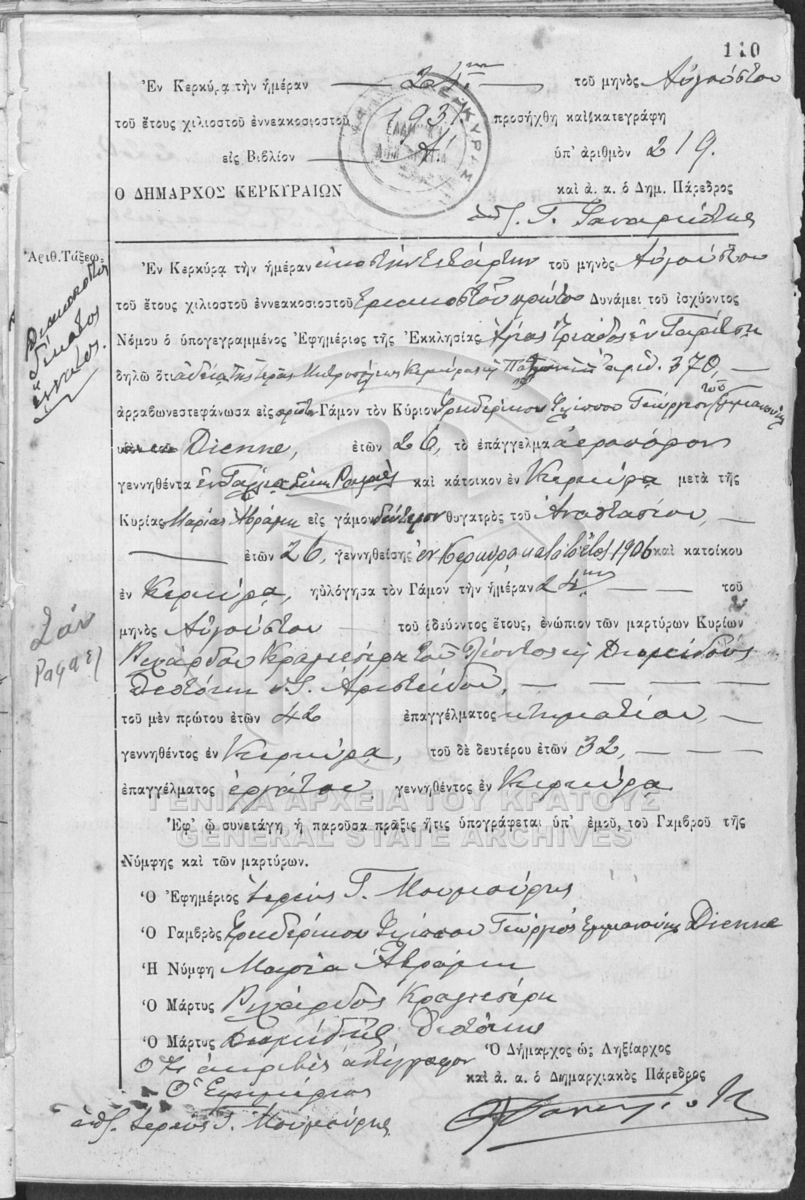 110
Ἐν Κερκύρᾳ τὴν ἡμέραν 24ην τοῦ μηνὸς Αὐγούστου
τοῦ ἔτους χιλιοστοῦ ἐννεακοσιοστοῦ 1931 προσήχθη καὶ κατεγράφη
εἰς Βιβλίον Α΄ ὑπ' ἀριθμὸν 219.
Ο ΔΗΜΑΡΧΟΣ ΚΕΡΚΥΡΑΙΩΝ καὶ ἀ. ἀ. ὁ Δημ. Πάρεδρος
Γ.
Ἀριθ. Τάξεω.
Διακοσιοστὸς
δέκατος
ἔννατος.
Ἐν Κερκύρᾳ τὴν ἡμέραν εἰκοστὴν τετάρτην τοῦ μηνὸς Αὐγούστου
τοῦ ἔτους χιλιοστοῦ ἐννεακοσιοστοῦ τριακοστοῦ πρώτου Δυνάμει τοῦ ἰσχύοντος
Νόμου ὁ ὑπογεγραμμένος Ἐφημέριος τῆς Ἐκκλησίας Ἁγίας Τριάδος ἐν Γαρίτσῃ
δηλῶ ὅτι ἀδείᾳ τῆς Ἱερᾶς Μητροπόλεως Κερκύρας ὑπ' ἀριθ. 370,
ἀρραβωνεστεφάνωσα εἰς πρῶτον Γάμον τὸν Κύριον Φρειδερίκον Φίλιππον Γεώργιον Ἐμμανουὴλ
Dienne, ἐτῶν 26, τὸ ἐπάγγελμα ἀεροπόρον
γεννηθέντα ἐν Σαὶν Ραφαὲλ καὶ κάτοικον ἐν Κερκύρᾳ μετὰ τῆς
Κυρίας Μαρίας Ἀβράμη εἰς γάμον δεύτερον θυγατρὸς τοῦ Ἀναστασίου,
ἐτῶν 26, γεννηθείσης ἐν Κερκύρᾳ κατὰ τὸ ἔτος 1906 καὶ κατοίκου
ἐν Κερκύρᾳ, ηὐλόγησα τὸν Γάμον τὴν ἡμέραν 24ην τοῦ
μηνὸς Αὐγούστου τοῦ ὁδεύοντος ἔτους, ἐνώπιον τῶν μαρτύρων Κυρίων
Σὰν
Ραφαὲλ
Ριχάρδου τοῦ Λέοντος ἢ Διομήδους
Δεστούνη Ἀριστείδου,
τοῦ μὲν πρώτου ἐτῶν 42 ἐπαγγέλματος κτηματίου,
γεννηθέντος ἐν Κερκύρᾳ, τοῦ δὲ δευτέρου ἐτῶν 32,
ἐπαγγέλματος ἐργάτου γεννηθέντος ἐν Κερκύρᾳ
ΓΕΝΙΚΑ ΑΡΧΕΙΑ ΤΟΥ ΚΡΑΤΟΥΣ
Ἐφ' ᾧ συνετάγη ἡ παροῦσα πρᾶξις ἥτις ὑπογράφεται ὑπ' ἐμοῦ, τοῦ Γαμβροῦ τῆς
GENERAL STATE ARCHIVES
Νύμφης καὶ τῶν μαρτύρων.
Ὁ Ἐφημέριος ἱερεὺς Γ. Μουμούρης
Ὁ Γαμβρὸς Φρειδερίκου Φίλιππου Γεώργιος Ἐμμανουὴλ Dienne
Ἡ Νύμφη Μαρία Ἀβράμη
Ὁ Μάρτυς Ριχάρδος
Ὁ Μάρτυς Διομήδης
Ὁ Δήμαρχος ὡς Ληξίαρχος
ἀκριβὲς ἀντίγραφον
καὶ ἀ. ἀ. ὁ Δημαρχιακὸς Πάρεδρος
Ὁ Ἐφημέριος
ἱερεὺς Γ. Μουμούρης